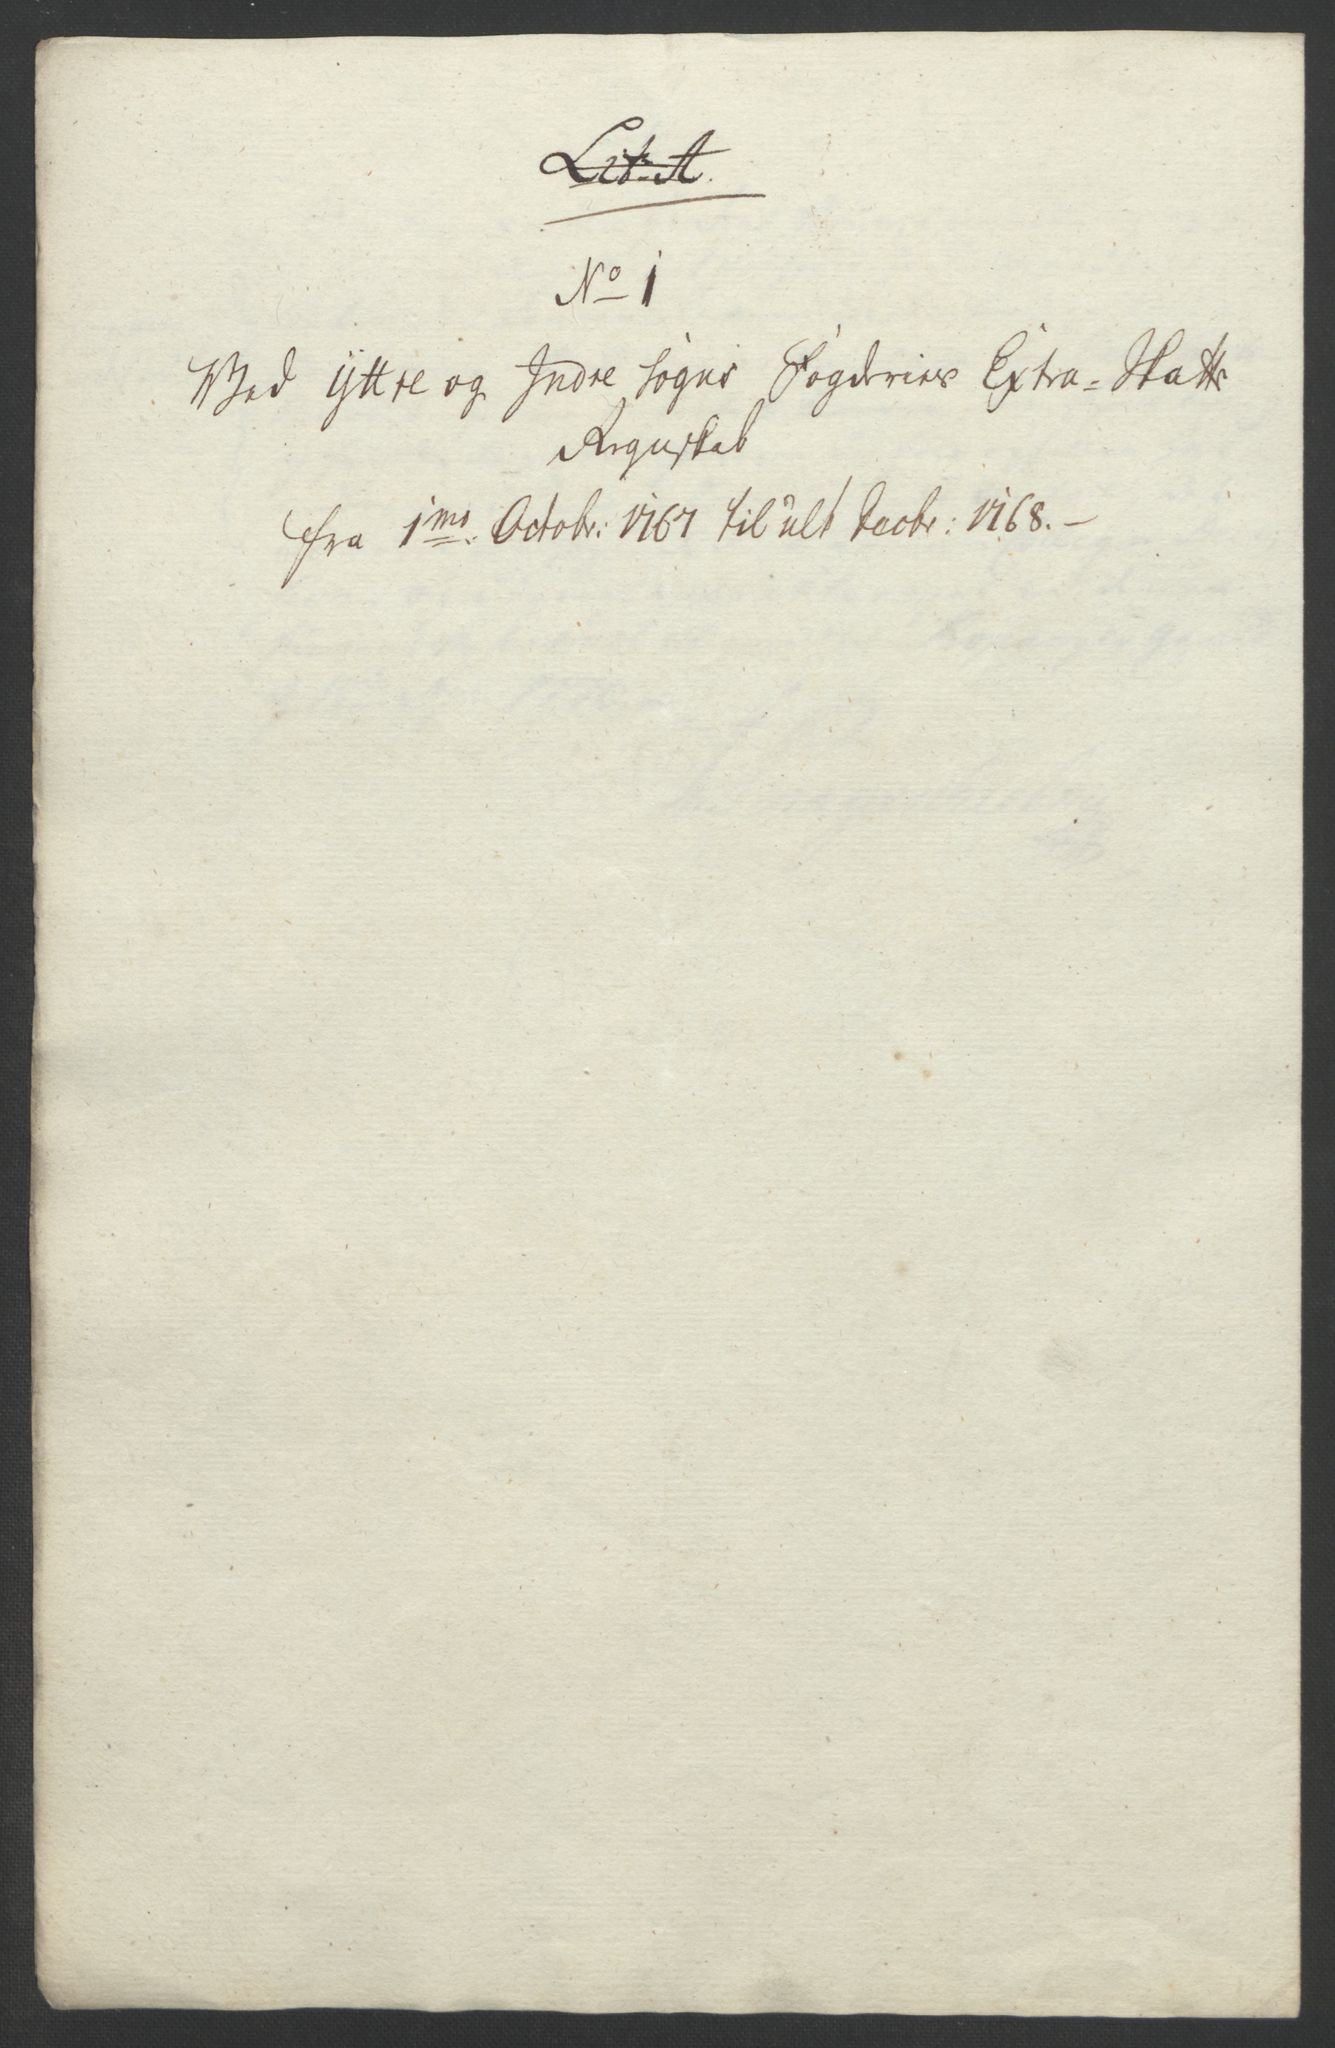 Litr A.
No 1
Ved ÿttre og Indre Sogns Fogderies Extra=Skatts
Regnskab
fra 1mo: Octobr: 1767 til ult Decbr: 1768.-